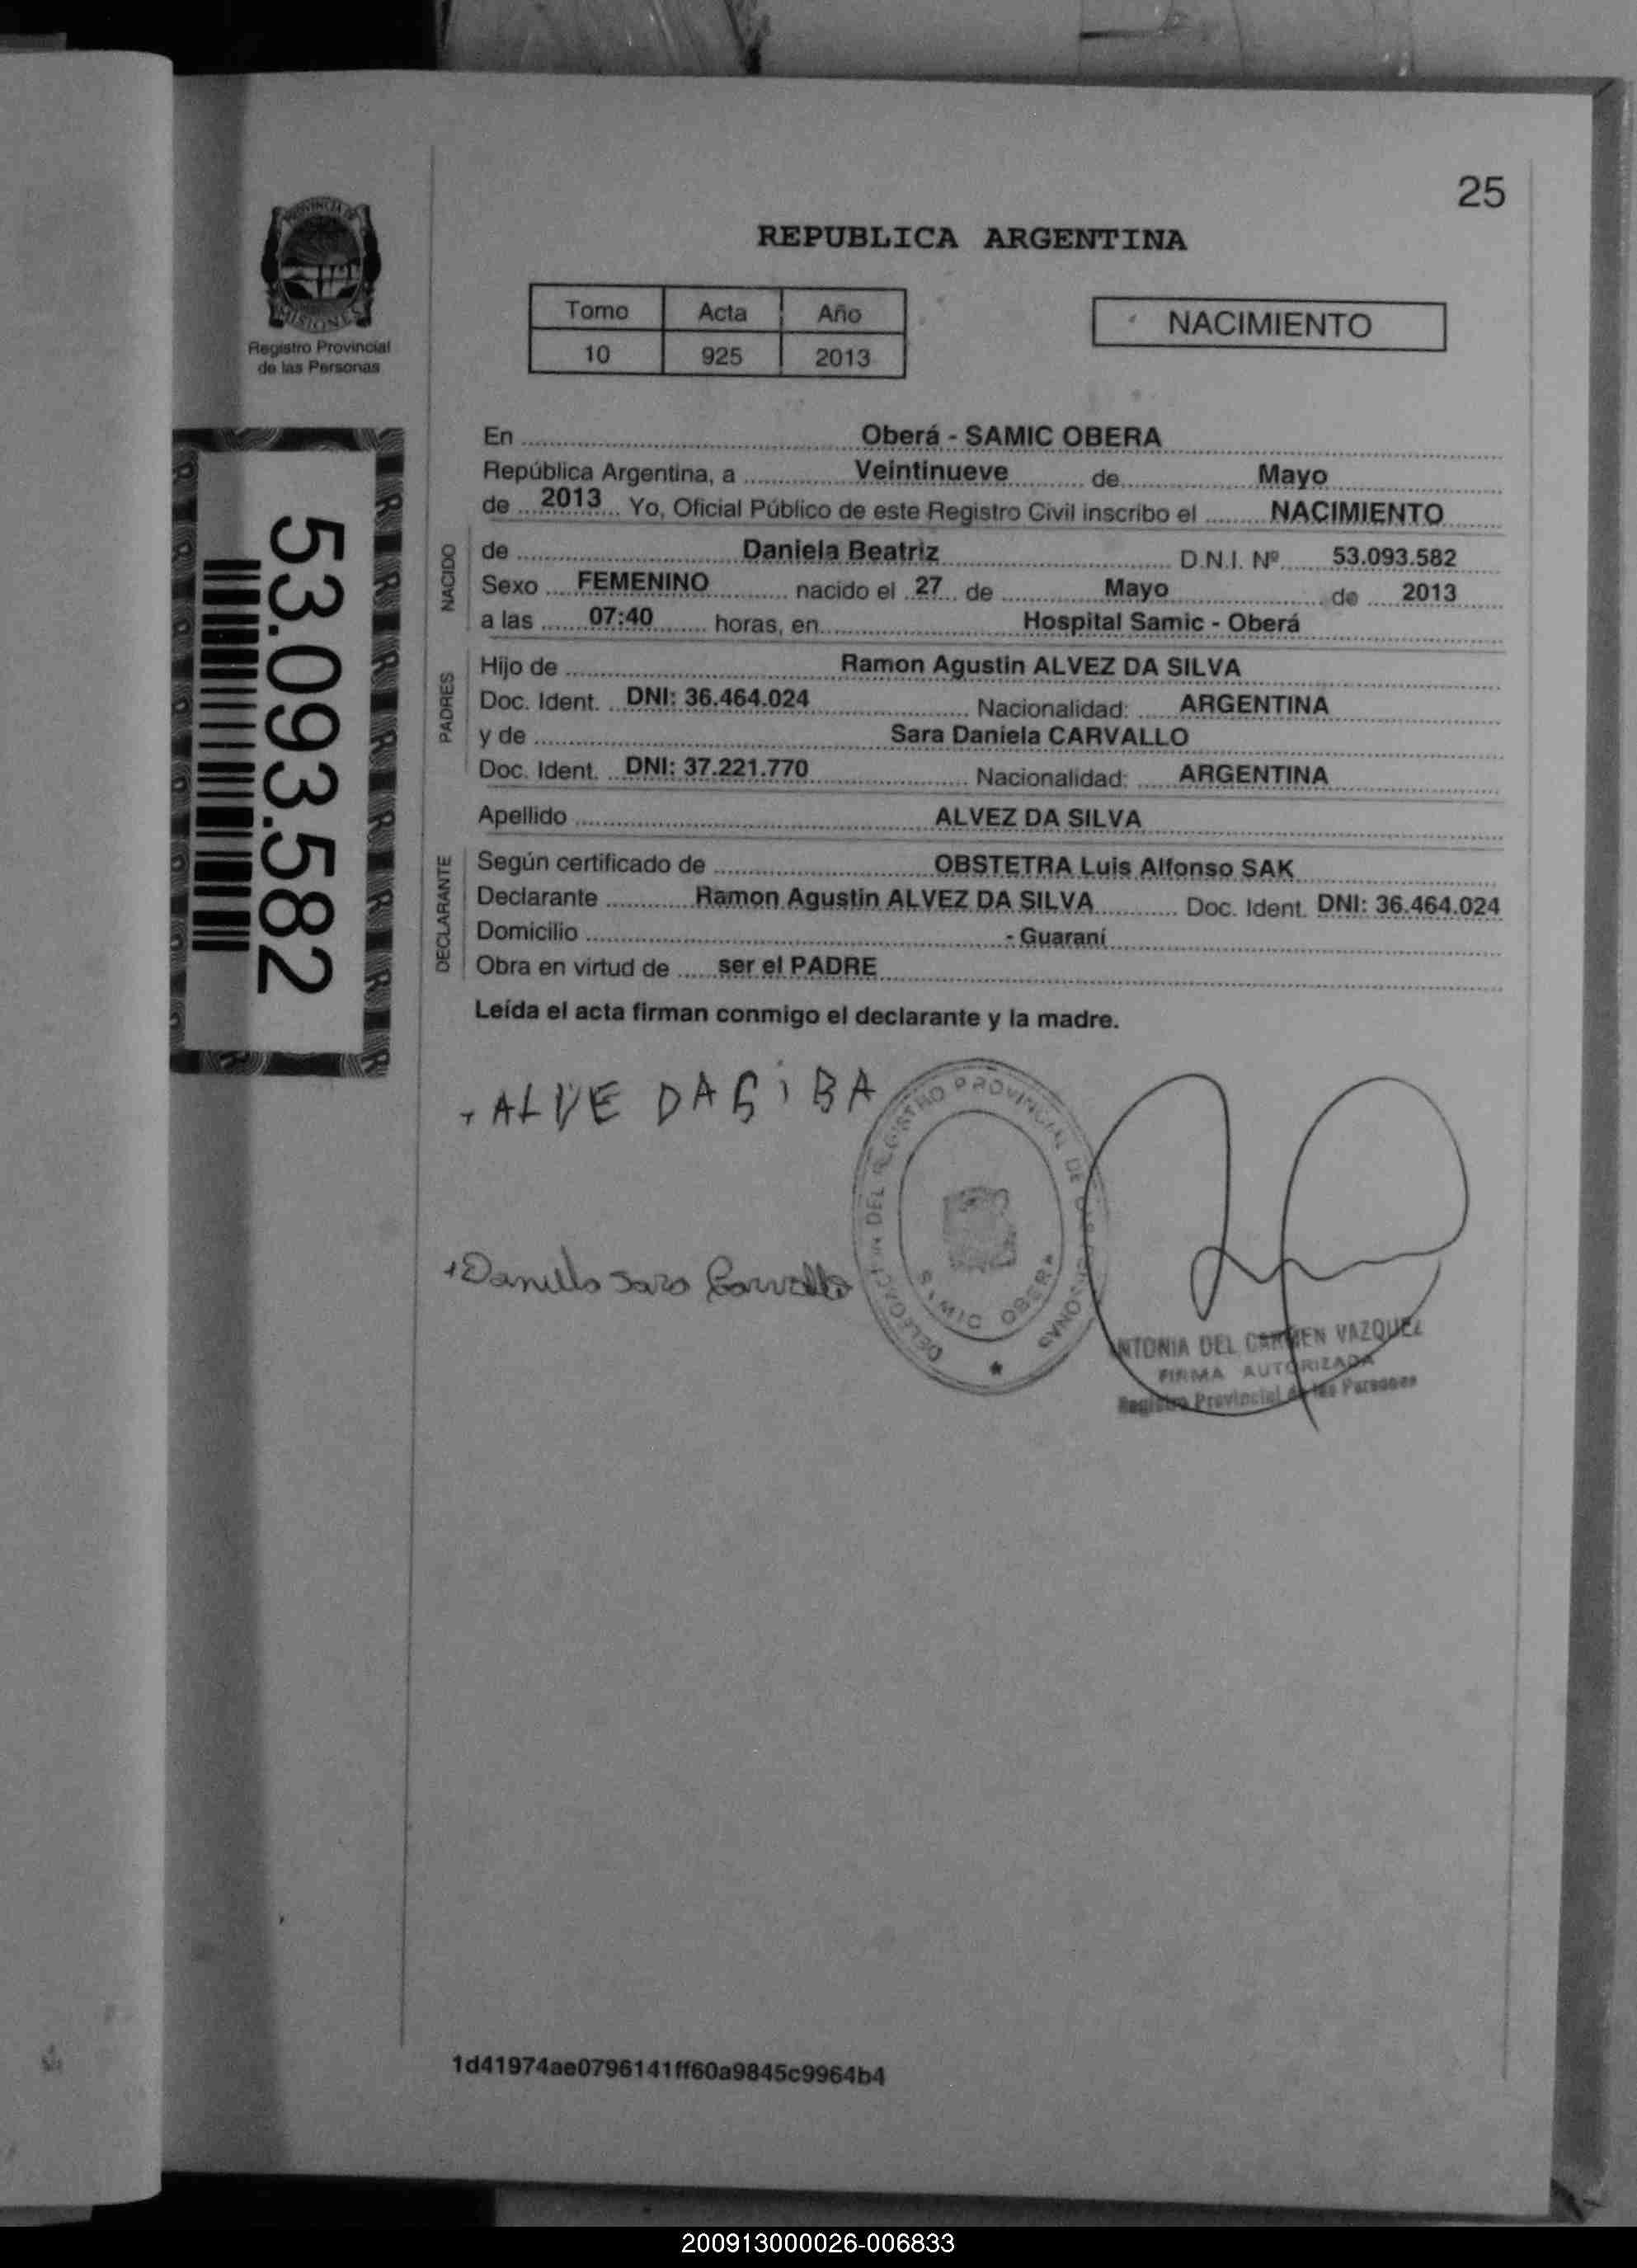 25
PROVINCIA DE
MISIONES
Registro Provincial
de las Personas
REPUBLICA ARGENTINA
Tomo Acta Año
10 925 2013
NACIMIENTO
53.093.582
En Oberá - SAMIC OBERA
República Argentina, a Veintinueve de Mayo
de 2013 Yo, Oficial Público de este Registro Civil inscribo el NACIMIENTO
NACIDO
de Daniela Beatriz D.N.I. Nº 53.093.582
Sexo FEMENINO nacido el 27 de Mayo de 2013
a las 07:40 horas, en Hospital Samic - Oberá
PADRES
Hijo de Ramon Agustin ALVEZ DA SILVA
Doc. Ident. DNI: 36.464.024 Nacionalidad: ARGENTINA
y de Sara Daniela CARVALLO
Doc. Ident. DNI: 37.221.770 Nacionalidad: ARGENTINA
Apellido ALVEZ DA SILVA
DECLARANTE
Según certificado de OBSTETRA Luis Alfonso SAK
Declarante Ramon Agustin ALVEZ DA SILVA Doc. Ident. DNI: 36.464.024
Domicilio - Guaraní
Obra en virtud de ser el PADRE
Leída el acta firman conmigo el declarante y la madre.
+ ALVE DASIBA
+Daniella Sara Carvallo
DELEGACION DEL REGISTRO PROVINCIAL DE LAS PERSONAS
SAMIC OBERA
ANTONIA DEL CARMEN VAZQUEZ
FIRMA AUTORIZADA
Registro Provincial de las Personas
1d41974ae0796141ff60a9845c9964b4
200913000026-006833